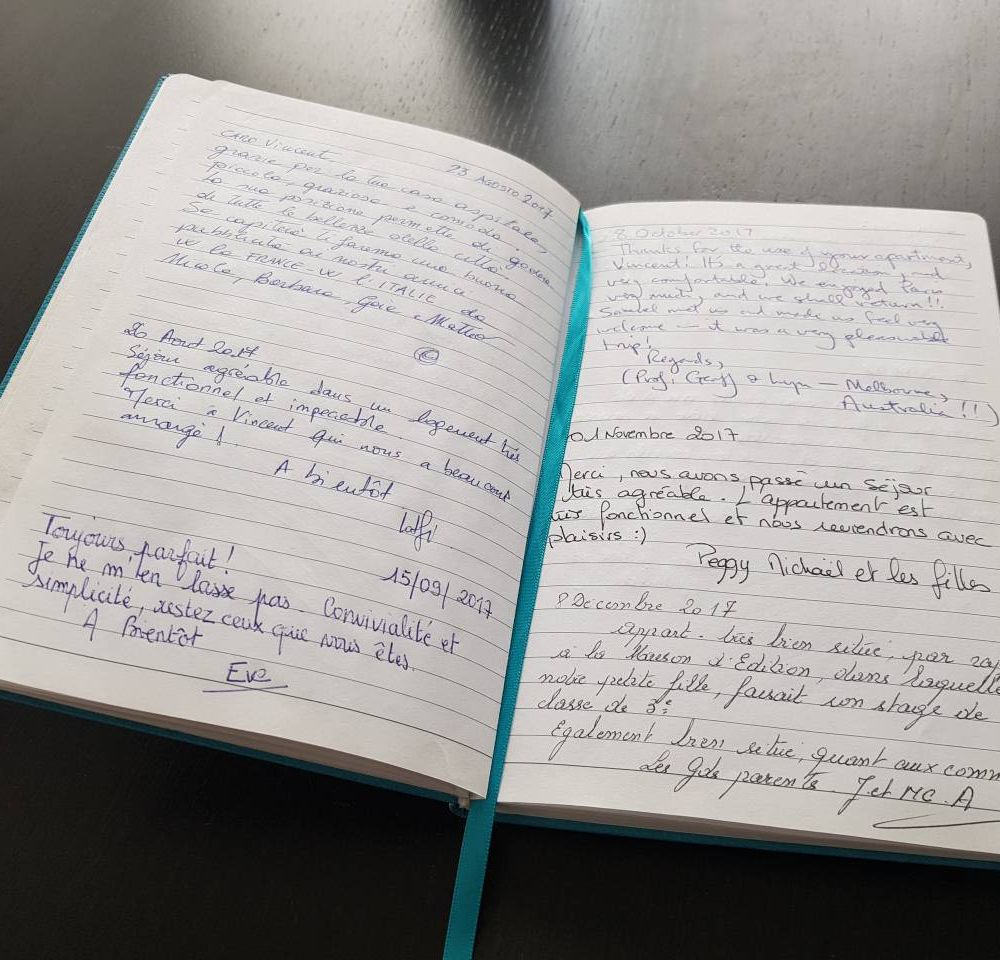 CARO Vincent
23 AGOSTO 2017
grazie per la tua casa ospitale,
piccola, graziosa e comoda.
La sua posizione permette di godere
di tutte le bellezze della città.
Se capiterà ti faremo una buona
pubblicità ai nostri amici
W la FRANCE - W l'ITALIE da
Nicola, Barbara, Gaie Matteo
20 Aout 2017
Séjour agréable dans un logement très
fonctionnel et impeccable.
Merci a Vincent qui nous a beaucoup
arrangé !
A bientôt
Toujours parfait !
15/09/2017
Je ne m'en lasse pas. Convivialité et
simplicité, restez ceux que vous êtes.
A Bientôt
Eve
8 October 2017
Thanks for the use of your apartment,
Vincent! It's a great location and
very comfortable. We enjoyed Paris
very much, and we shall return!!
Samuel met us and made us feel very
welcome — it was a very pleasurable
trip!
Regards,
(Prof. Geoff & — Melbourne,
Australia !!)
01 Novembre 2017
Merci, nous avons passé un séjour
très agréable. L'appartement est
très fonctionnel et nous reviendrons avec
plaisirs :)
Peggy Michaël et les filles
8 Décembre 2017
appart. très bien située, par rap
à la Maison d'Edition, dans laquelle
notre petite fille, faisait son stage de
classe de 3e.
Egalement bien située, quant aux comm
Les Gds parents. J et MC. A